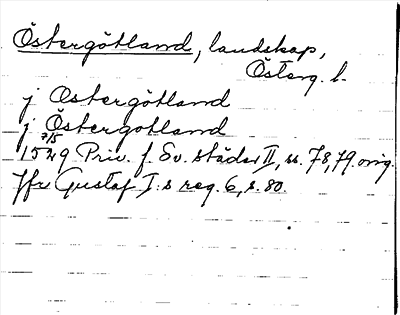 Östergötland, landskap,
Österg. l.
j Östergötland
j Östergotland
7/5
1529 Priv. f. Sv. städer II, ss. 78, 79. orig.
Jfr Gustaf I:s reg. 6, s. 80.